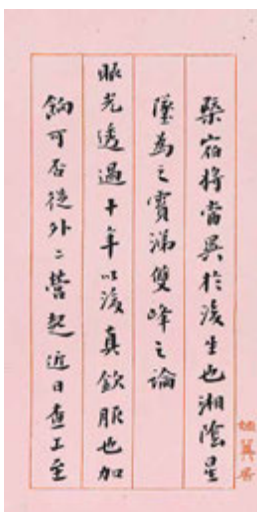 桀宿将當畏於後生也湘陰星
隕為之實涕雙峰之論
眼光透過十年以後真欽服也加
餉可否從外二營起近日查工至